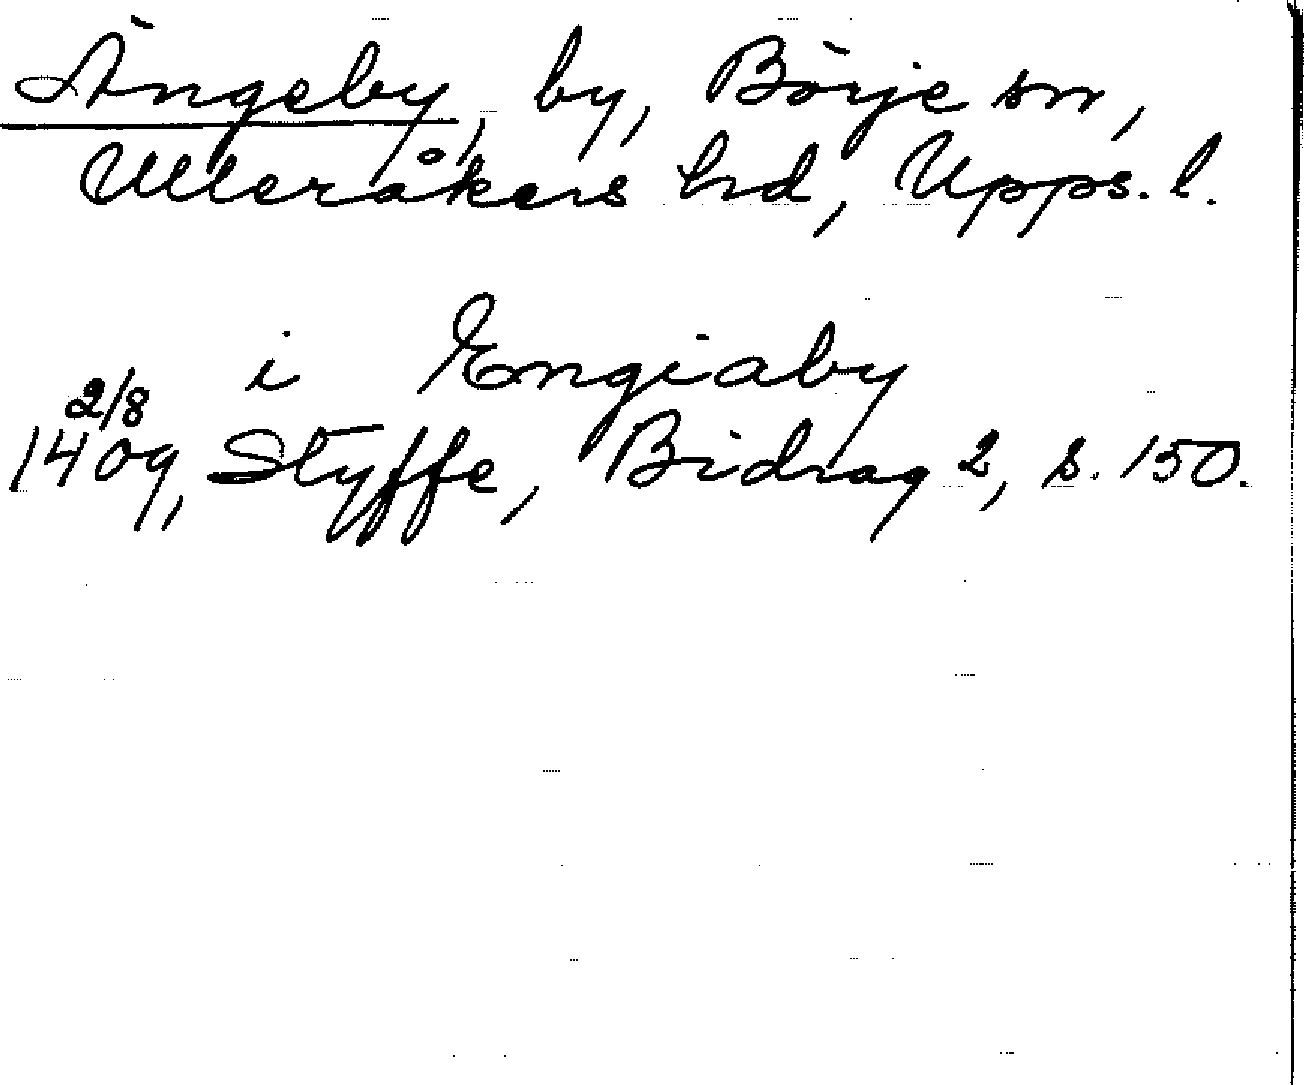 Ängeby, by, Börje sn,
Ulleråkers hd, Upps. l.
i Engiaby
2/8
1409, Styffe, Bidrag 2, s. 150.